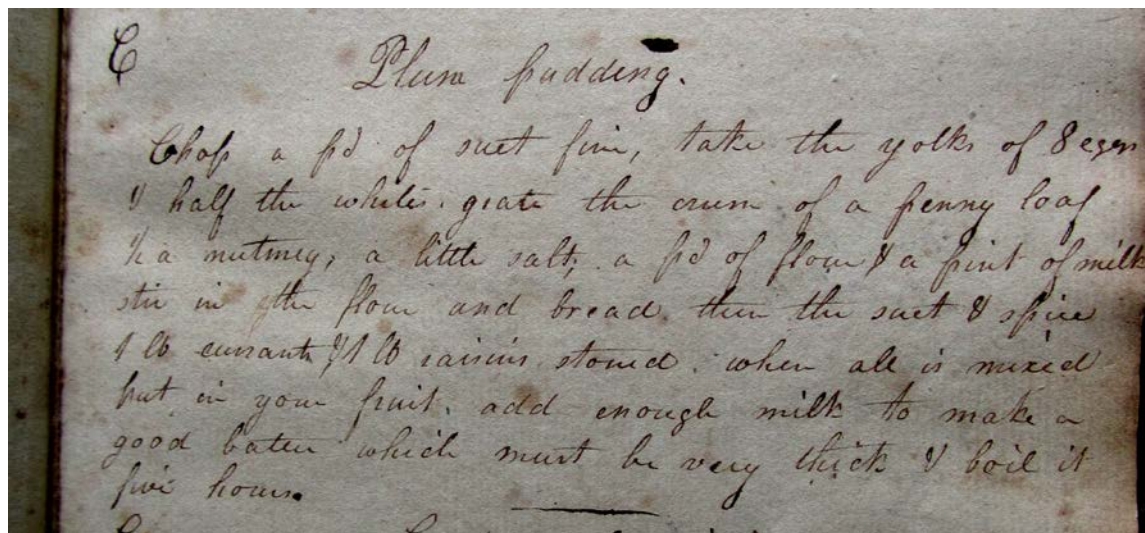 C
Plum pudding.
Chop a pd of suet fine, take the yolks of 8 eggs
& half the whites. grate the crum of a penny loaf
½ a nutmeg, a little salt, a pd of flour & a pint of milk
stir in the flour and bread then the suet & spice
1 lb currants & 1 lb raisins stoned. when all is mixed
put in your fruit. add enough milk to make a
good batter which must be very thick & boil it
five hours.